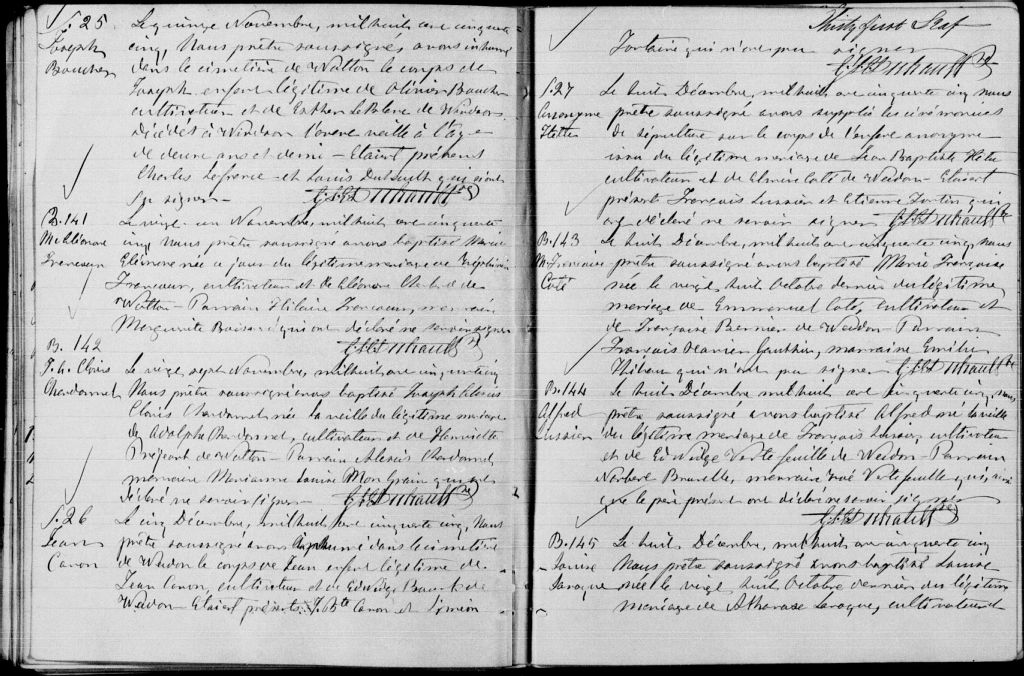 S. 25
Joseph
Boucher
Le quinze Novembre, mil huit cent cinquante
cinq, Nous prêtre soussigné, avons inhumé
dans le cimetière de Wotton le corps de
Joseph enfant légitime de Olivier Boucher
cultivateur et de Esther LeBlanc de Windsor,
décédé à Windsor l'avant veille à l'âge
de deux ans et demi - Etaient présents
Charles Lefrance et Louis qui n'ont
su signer -
B. 141
M. Eléonore
Francoeur
Le vingt Novembre, mil huit cent cinquante
cinq Nous prêtre soussigné avons baptisé Marie
Eléonore née ce jour du légitime mariage de
Francoeur, cultivateur et de Eléonore de
Wotton - Parrain Hilaire Francoeur, marraine
Marguerite qui ont déclaré ne savoir signer
B. 142
J. A. Cléris
Chardonnet
Le vingt sept Novembre, mil huit cent cinquante cinq
Nous prêtre soussigné avons baptisé Joseph Alexis
Cléris Chardonnet née la veille du légitime mariage
de Adolphe Chardonnet, cultivateur et de Henriette
Préjeant de Wotton - Parrain Alexis Chardonnet
marraine Marianne Louise Mongrain qui ont
déclaré ne savoir signer -
S. 26
Jean
Caron
Le cinq Décembre, mil huit cent cinquante cinq, Nous
prêtre soussigné avons inhumé dans le cimetière
de Weedon le corps de Jean enfant légitime de
Jean Caron, cultivateur et de Edwidge de
Weedon - Etaient présents J. Bte Caron et Siméon
Thirty first Leaf
Fontaine qui n'ont pu signer
S. 27
Anonyme
Hettu
Le huit Décembre, mil huit cent cinquante cinq nous
prêtre soussigné avons suppléé les cérémonies
de sépulture sur le corps de l'enfant anonyme
issu du légitime mariage de Jean Baptiste Hétu
cultivateur et de Elmire Coté de Weedon - Etaient
présents François Lussier et Etienne Fortin qui
ont déclaré ne savoir signer
B. 143
M. Françoise
Coté
Le huit Décembre, mil huit cent cinquante cinq, nous
prêtre soussigné avons baptisé Marie Françoise
née le vingt huit Octobre dernier du légitime
mariage de Emmanuel Coté, cultivateur et
de Françoise Bernier de Weedon - Parrain
François Xavier Gauthier, marraine Emélie
Thibeau qui n'ont pu signer
B. 144
Alfred
Lussier
Le huit Décembre mil huit cent cinquante cinq, nous
prêtre soussigné avons baptisé Alfred né la veille
du légitime mariage de François Lussier cultivateur
et de Edwidge Vertefeuille de Weedon - Parrain
Norbert marraine Vertefeuille qui ainsi
que le père présent ont déclaré ne savoir signer
B. 145
Louise
Laroque
Le huit Décembre, mil huit cent cinquante cinq
Nous prêtre soussigné avons baptisé Louise
née le vingt huit Octobre dernier du légitime
mariage de Athanase Laroque, cultivateur et